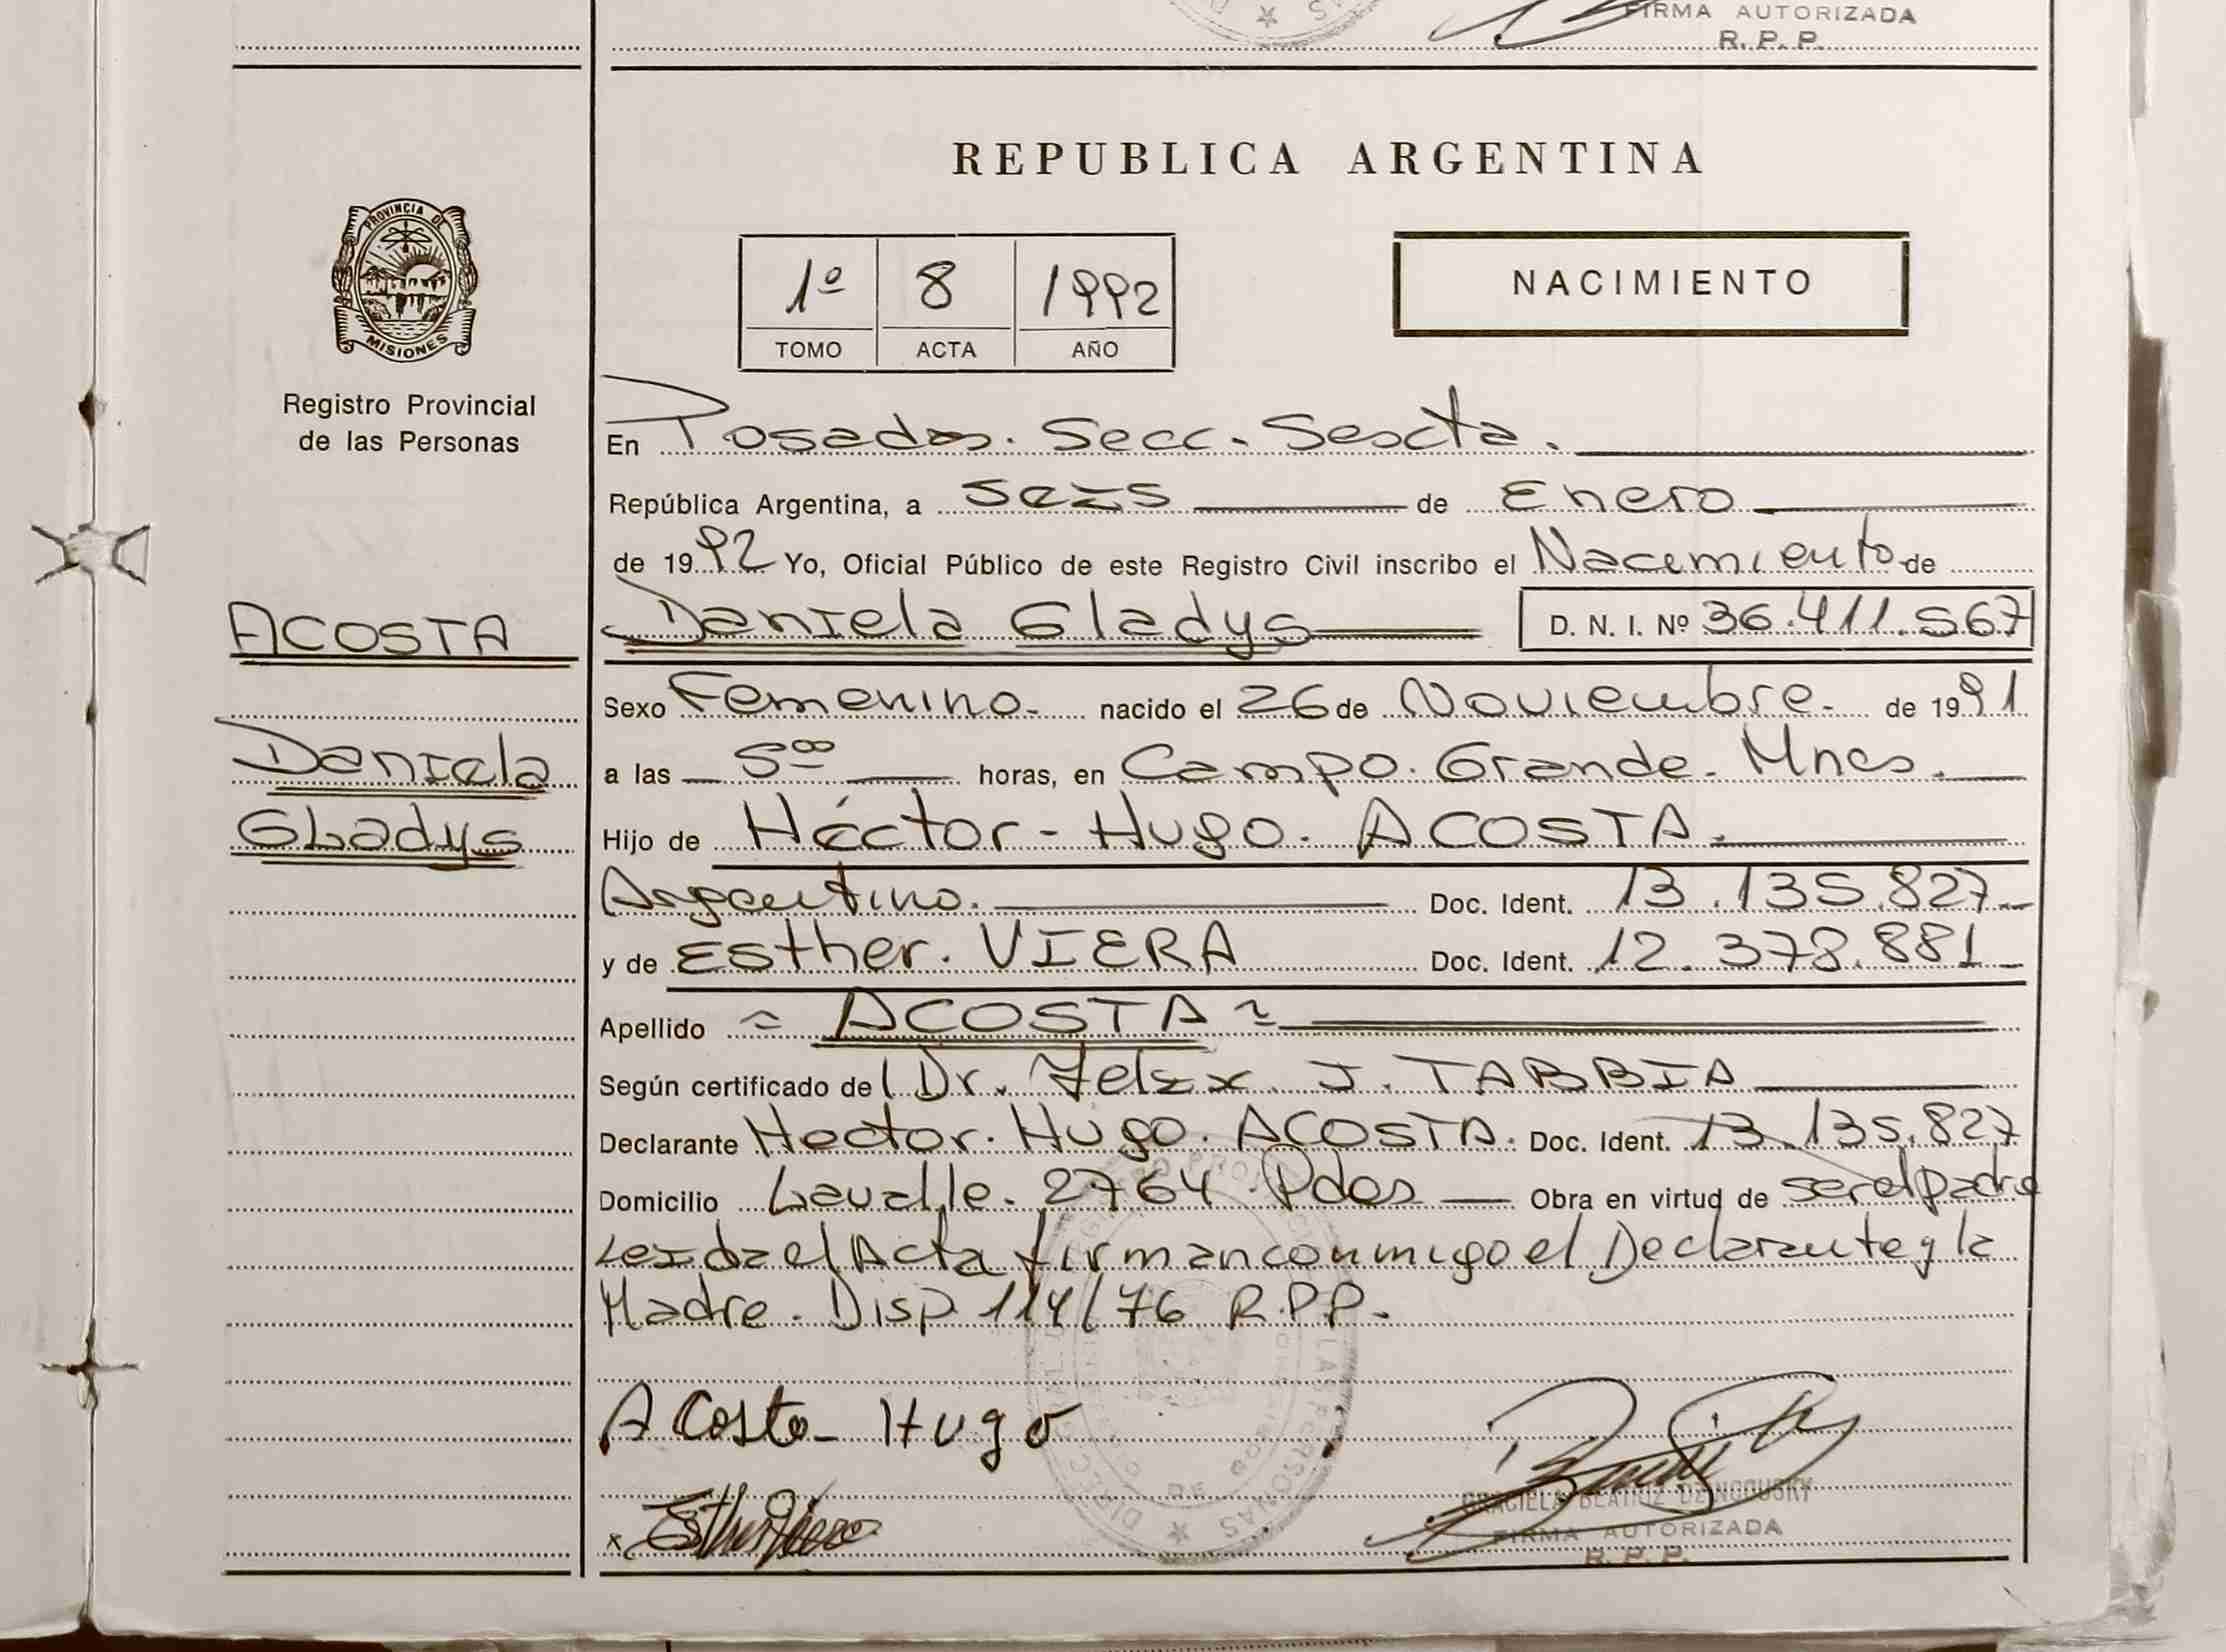 FIRMA AUTORIZADA
R. P. P.
REPUBLICA ARGENTINA
PROVINCIA DE
MISIONES
Registro Provincial
de las Personas
1º 8 1992
TOMO ACTA AÑO
NACIMIENTO
En Posadas. Secc. Sexta.
República Argentina, a seis de Enero
de 1992 Yo, Oficial Público de este Registro Civil inscribo el Nacimiento de
ACOSTA
Daniela Gladys D. N. I. Nº 36.411.567
Sexo Femenino. nacido el 26 de Noviembre. de 1991
Daniela
a las 5⁰⁰ horas, en Campo. Grande. Mnes.
Gladys
Hijo de Héctor - Hugo. ACOSTA.
Argentino. Doc. Ident. 13.135.827
y de Esther. VIERA Doc. Ident. 12.378.881
Apellido = ACOSTA =
Según certificado de Dr. Felix. J. TABBIA
Declarante Hector. Hugo. ACOSTA. Doc. Ident. 13.135.827
Domicilio Lavalle. 2764 Pdas Obra en virtud de ser el padre
Leida el Acta firman conmigo el Declarante y la
Madre. Disp 114/76 R.P.P.
Acosta Hugo
x Esther Viera
GRACIELA BEATRIZ
FIRMA AUTORIZADA
R. P. P.